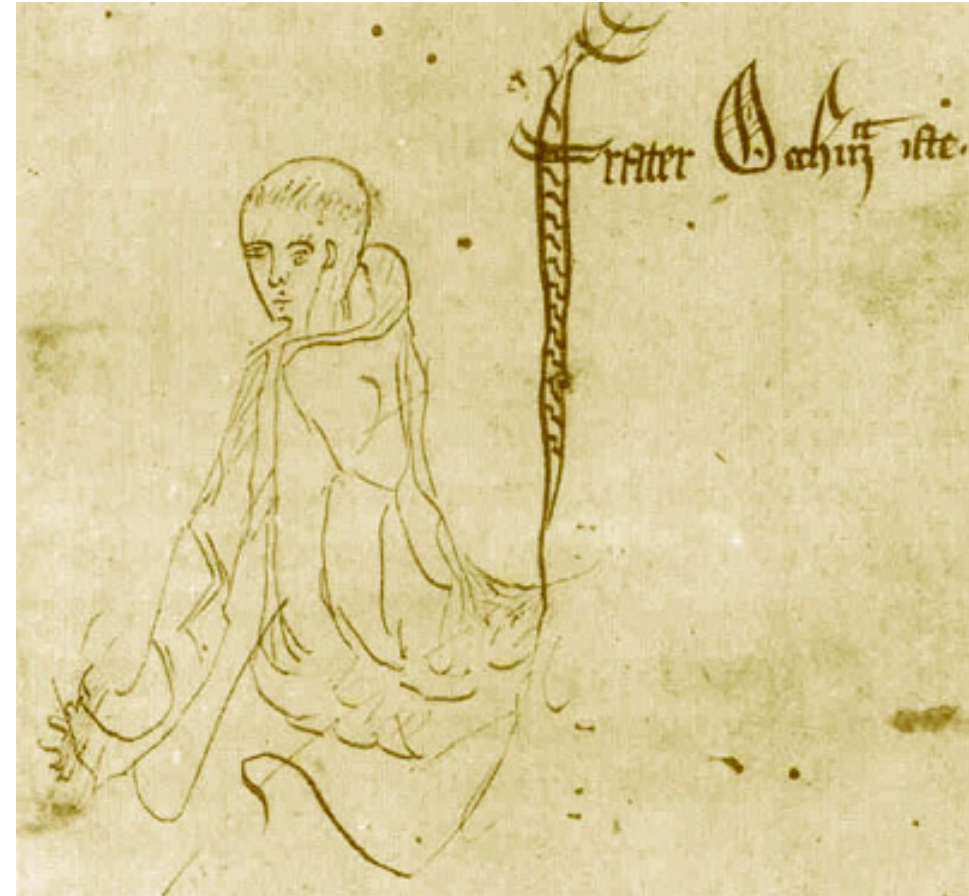 frater Occhm iste.